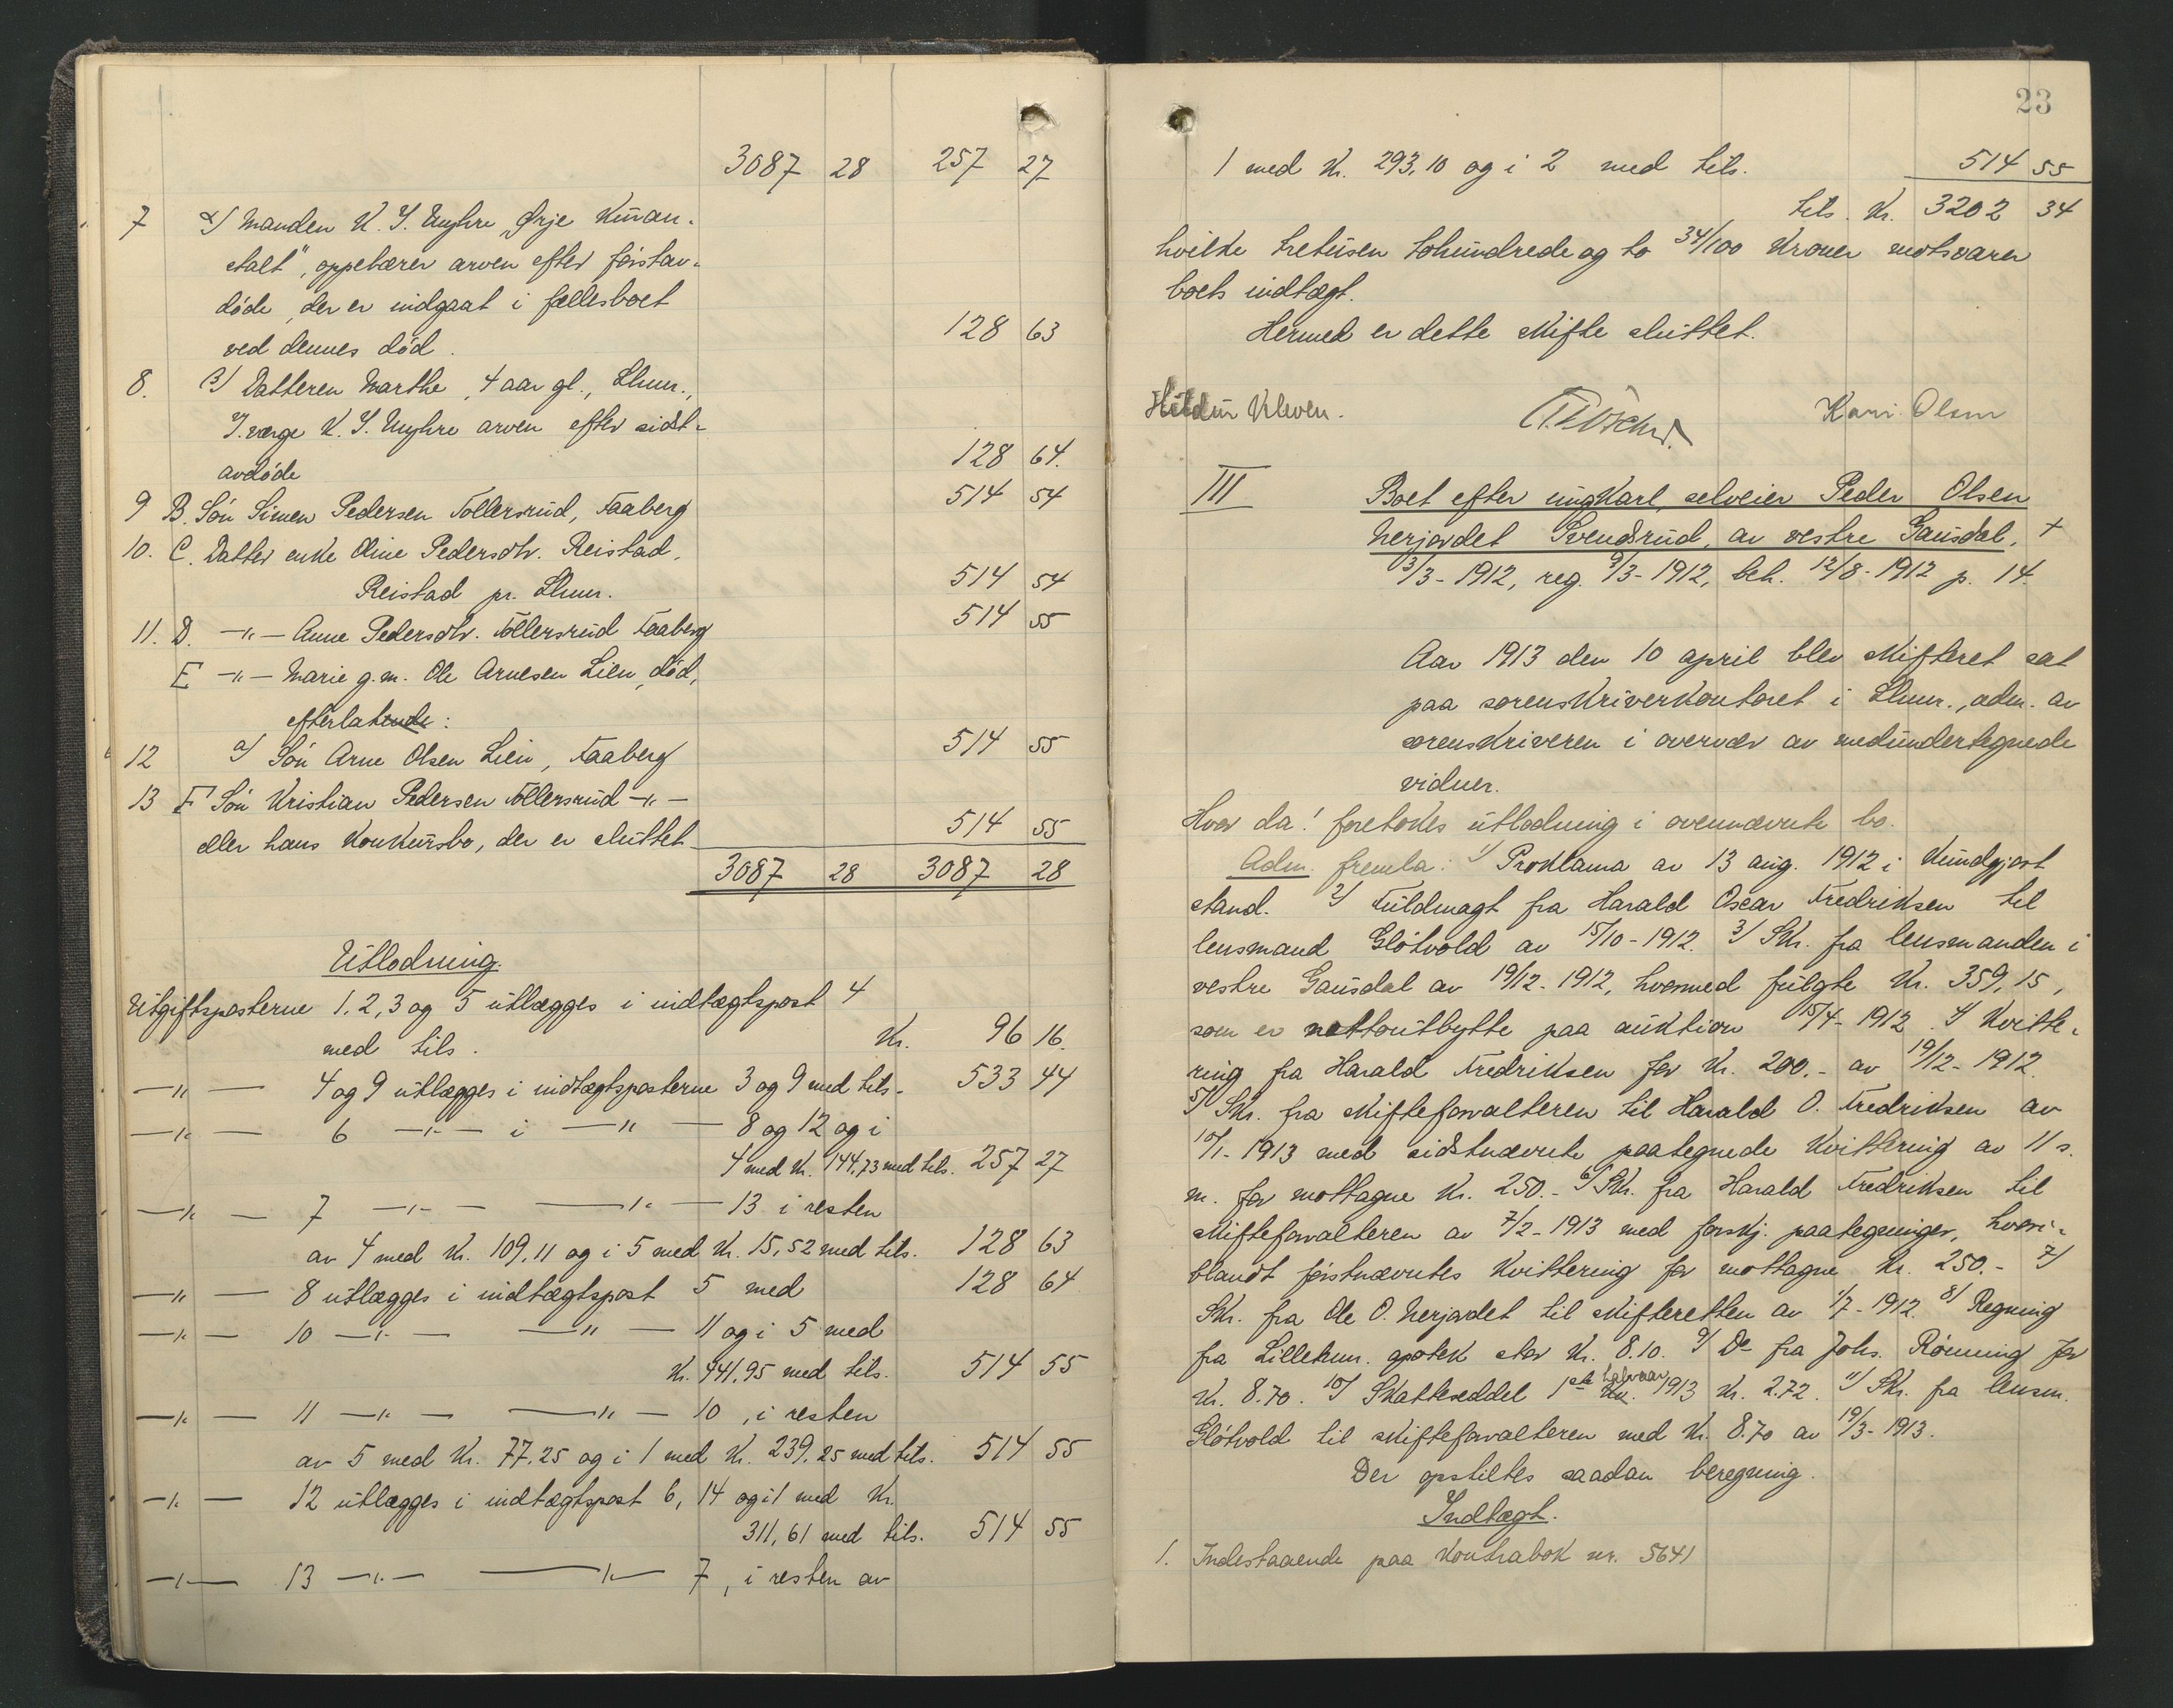 3087 28 257 27
7 α) Manden K. S. Uuyhre „Ørje Kuran-
stalt", oppebærer arven efter først av-
døde, der er indgaat i fællesboet
ved dennes død. 128 63
8. β) Datteren Marthe, 4 aar gl., Lhmr.,
F. verge K. S. Uuyhre arven efter sidst-
avdøde 128 64.
9 B. Søn Simen Pedersen Tollersrud, Faaberg 514 54
10. C. Datter enke Oline Pedersdtr. Reistad,
Reistad pr. Lhmr. 514 54
11. D. —"— Anne Pedersdtr. Tollersrud Faaberg 514 55
E —"— Marie g.m. Ole Arnesen Lien, død,
efterlatende:
12 a) Søn Arne Olsen Lien, Faaberg 514 55
13 F Søn Kristian Pedersen Tollersrud —"—
eller hans konkursbo, der er sluttet 514 55
3087 28 3087 28
Utlodning.
Utgiftsposterne 1, 2, 3 og 5 utlægges i indtægtspost 4
med tils. Kr. 96 16.
—"— 4 og 9 utlægges i indtægtsposterne 3 og 9 med tils. 533 44
—"— 6 —"— i —"— 8 og 12 og i
4 med Kr. 144,73 med tils. 257 27
—"— 7 —"— —"— 13 i resten
av 4 med Kr. 109,11 og i 5 med Kr. 15,52 med tils. 128 63
—"— 8 utlægges i indtægtspost 5 med 128 64
—"— 10 —"— —"— 11 og i 5 med
Kr. 441,95 med tils. 514 55
—"— 11 —"— —"— 10, i resten
av 5 med Kr. 77,25 og i 1 med Kr. 239,25 med tils. 514 55
—"— 12 utlægges i indtægtspost 6, 14 og i 1 med Kr.
311,61 med tils. 514 55
—"— 13 —"— —"— 7, i resten av
23
1 med Kr. 293,10 og i 2 med tils. 514 55
tils. Kr. 3202 34
hvilke tretusen tohundrede og to 34/100 Kroner motsvarer
boets indtægt.
Hermed er dette skifte sluttet.
Kleven. Kari Olsen
III Boet efter ungkarl, selveier Peder Olsen
Nerjordet Svendsrud, av vestre Gausdal, +
3/3-1912, reg. 9/3-1912, beh. 12/8-1912 p. 14.
Aar 1913 den 10 april blev skifteret sat
paa sorenskriverkontoret i Lhmr., adm. av
sorenskriveren i overvær av medundertegnede
vidner.
Hvor da! foretokes utlodning i ovennævnte bo.
Adm. fremla: 1) Proklama av 13 aug. 1912 i kundgjort
stand. 2) Fuldmagt fra Harald Oscar Fredriksen til
lensmand Gløtvold av 15/10-1912. 3) Skr. fra lensmanden i
vestre Gausdal av 19/12-1912, hvormed fulgte Kr. 359,15,
som er nettoutbytte paa auktion 15/4-1912. 4) Kvitte-
ring fra Harald Fredriksen for Kr. 200.- av 19/12-1912.
5) Skr. fra skifteforvalteren til Harald O. Fredriksen av
10/1-1913 med sidstnævnte paategnede kvittering av 11 s.
m. for mottagne Kr. 250.- 6) Skr. fra Harald Fredriksen til
skifteforvalteren av 7/2-1913 med forskj. paategninger, hvori-
blandt førstnævntes kvittering for mottagne Kr. 250.- 7)
Skr. fra Ole O. Nerjordet til skifteretten av 1/7-1912. 8) Regning
fra Lillehmr. apotek stor Kr. 8.10. 9) Do fra Johs. Rønning for
Kr. 8.70. 10) Skatteseddel 1ste halvaar 1913 Kr. 2.72. 11) Skr. fra lensm.
Gløtvold til skifteforvalteren med Kr. 8.70 av 19/3-1913.
Der opstiltes saadan beregning.
Indtægt.
1. Indestaaende paa Kontrabok nr. 5641